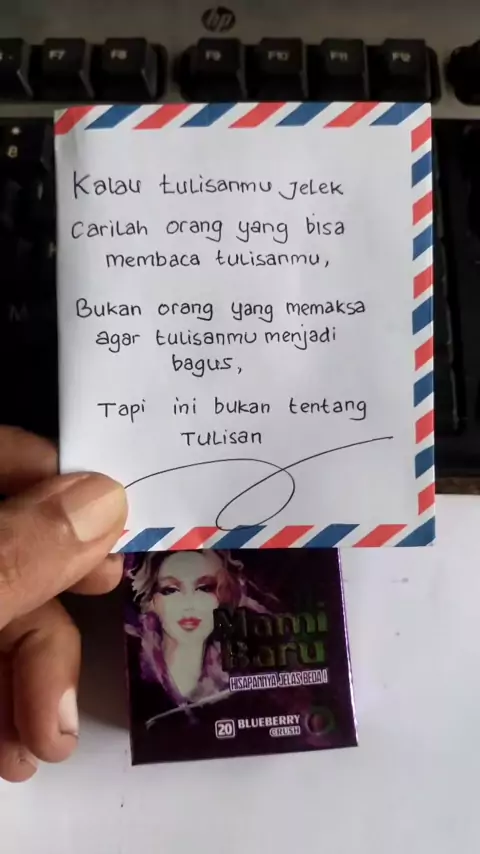 hp
F7 F8 F9 F10 F11 F12
8
Kalau tulisanmu Jelek
Carilah orang yang bisa
membaca tulisanmu,
Bukan orang yang memaksa
agar tulisanmu menjadi
bagus,
Tapi ini bukan tentang
TULISAN
Mami
Baru
HISAPANNYA JELAS BEDA!
20 BLUEBERRY
CRUSH